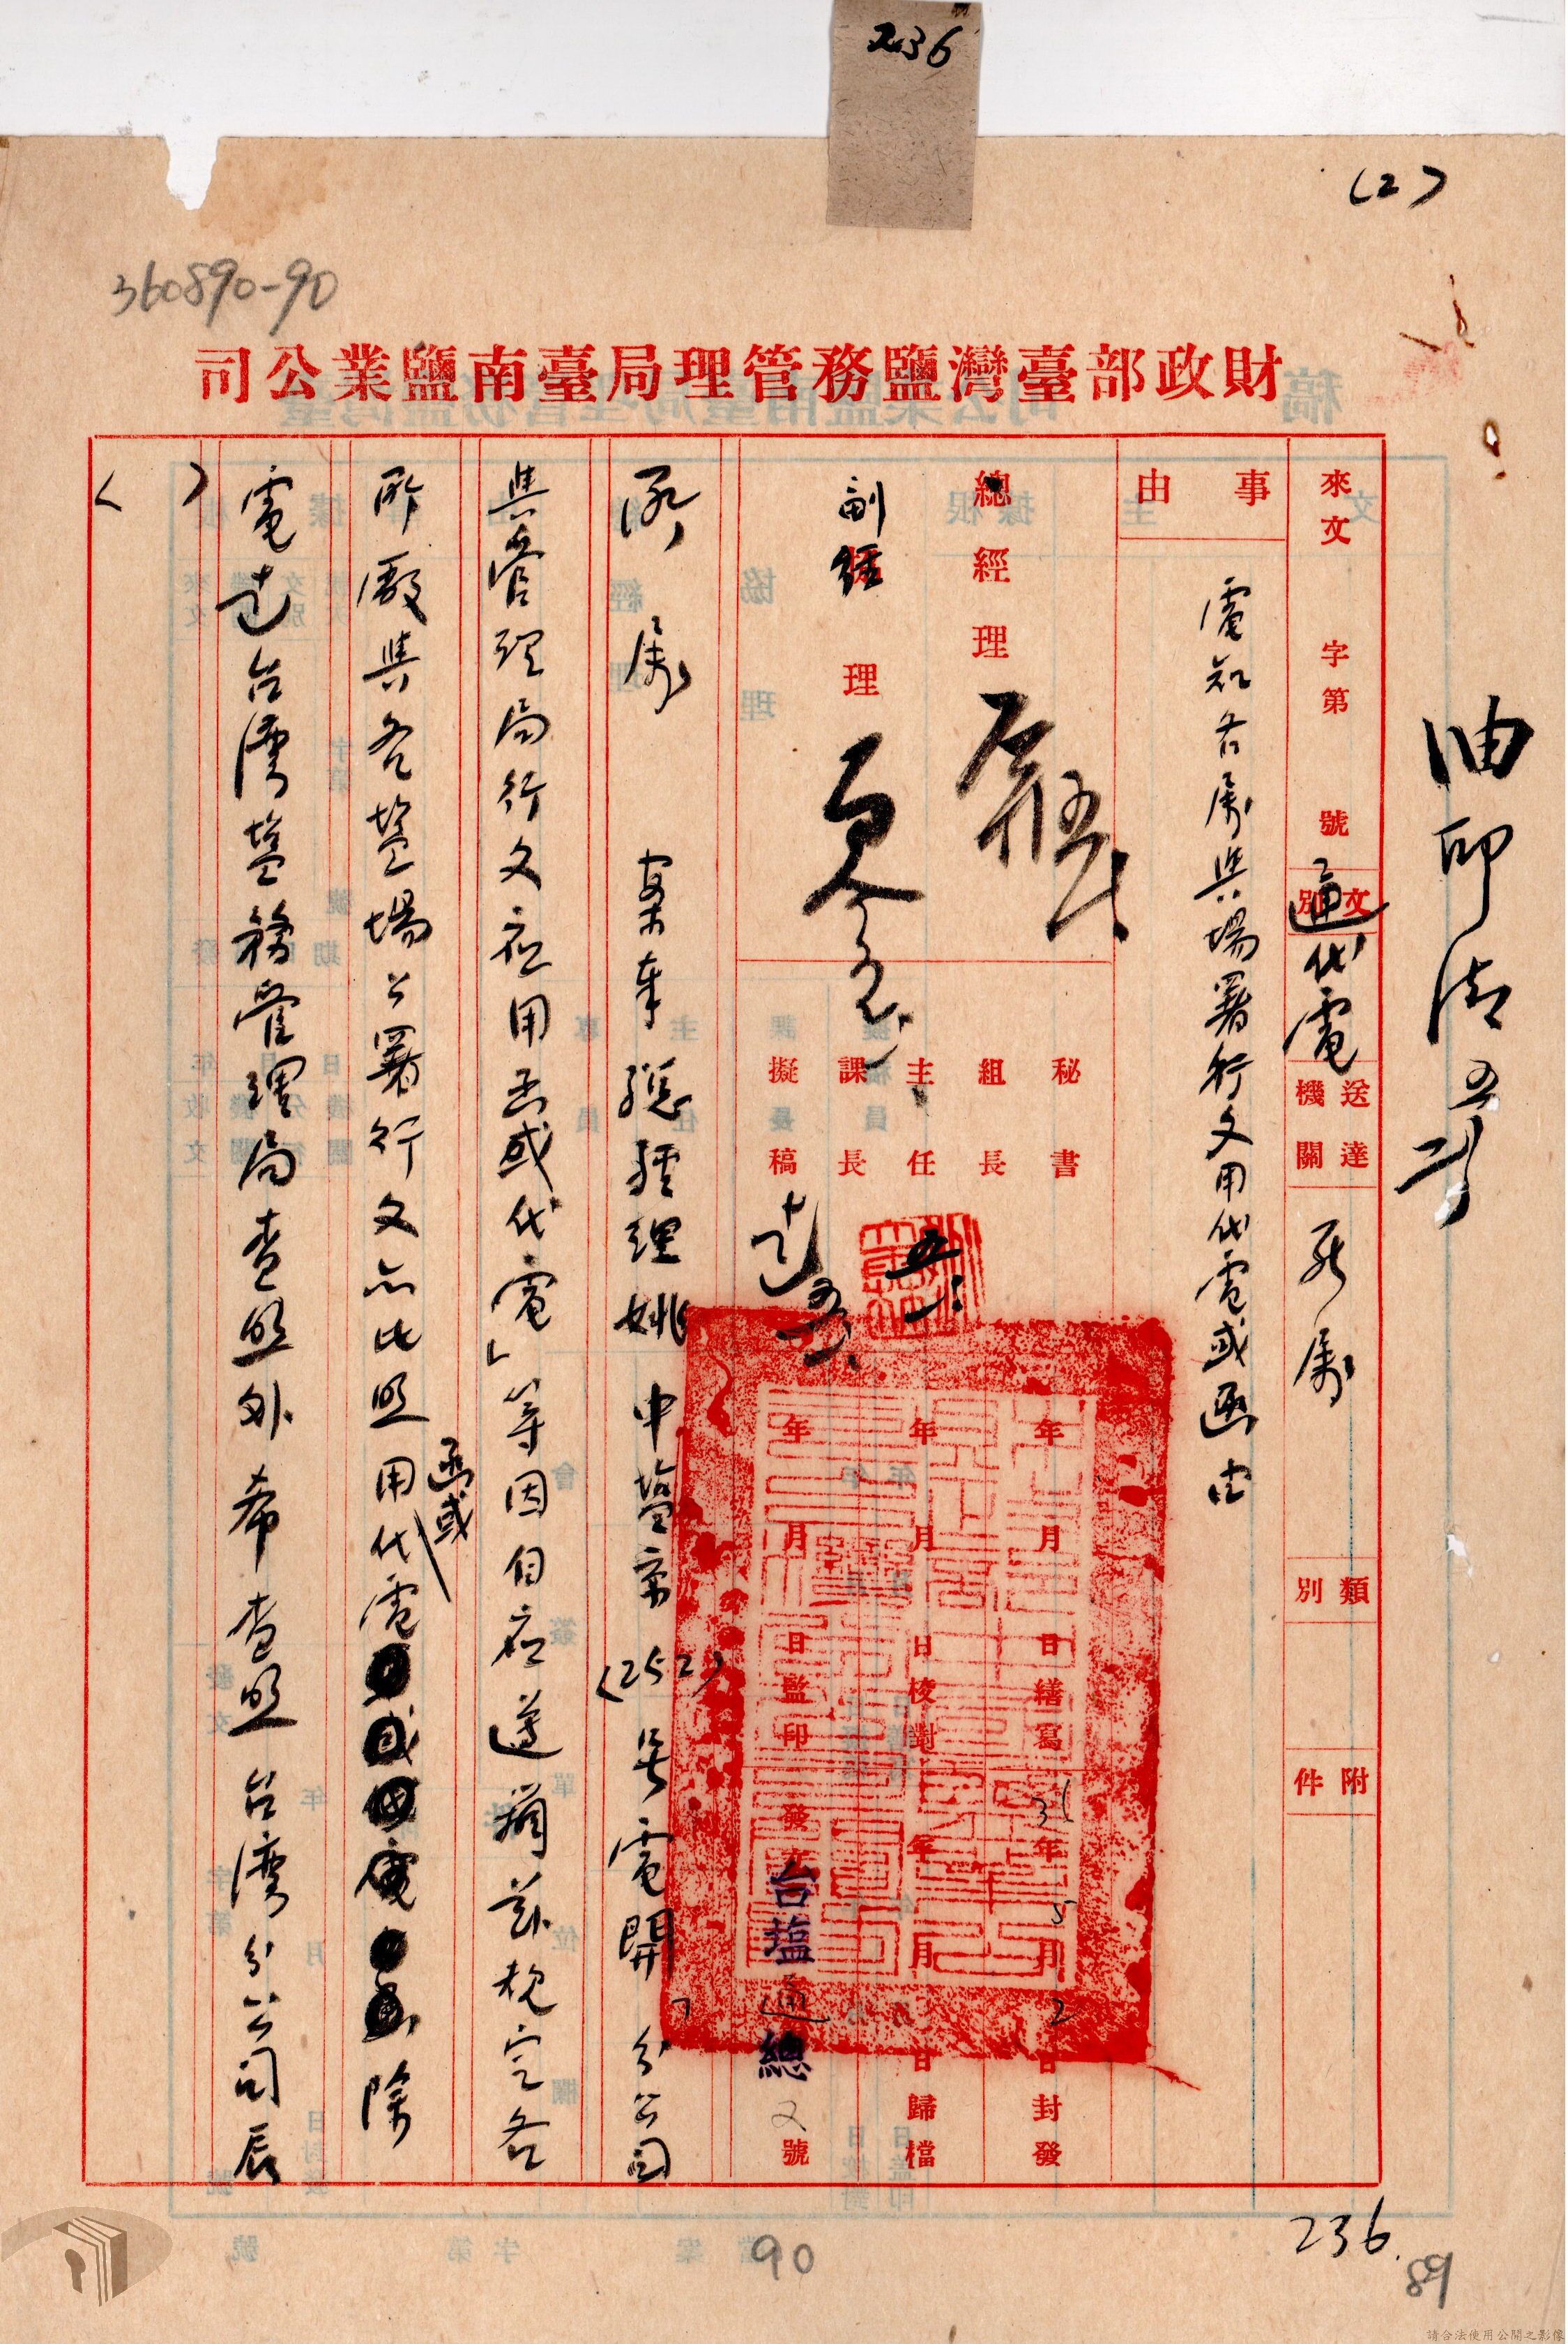 236
(2)
360890-90
財政部臺灣鹽務管理局臺南鹽業公司
油印
來文 字第 號
文別 通代電
送達機關 所屬
類別
附件
事由
電知各屬與場署行文用代電或函由
總經理
副經理
秘書
組長
主任
課長
擬稿
年 月 日繕寫
年 月 日校對
年 月 日監印
36年5月2日封發
年 月 日歸檔
發文 台塩通總 2 號
所屬 案奉總經理姚 申塩京(252)号電開「分公司
與管理局行文应用函或代電」等因自应遵辦茲規定各
所廠與各塩場公署行文亦比照用函或代電除
電達台湾塩務管理局查照外希查照 台湾分公司辰
( )
236
90
89
請合法使用公開之影像